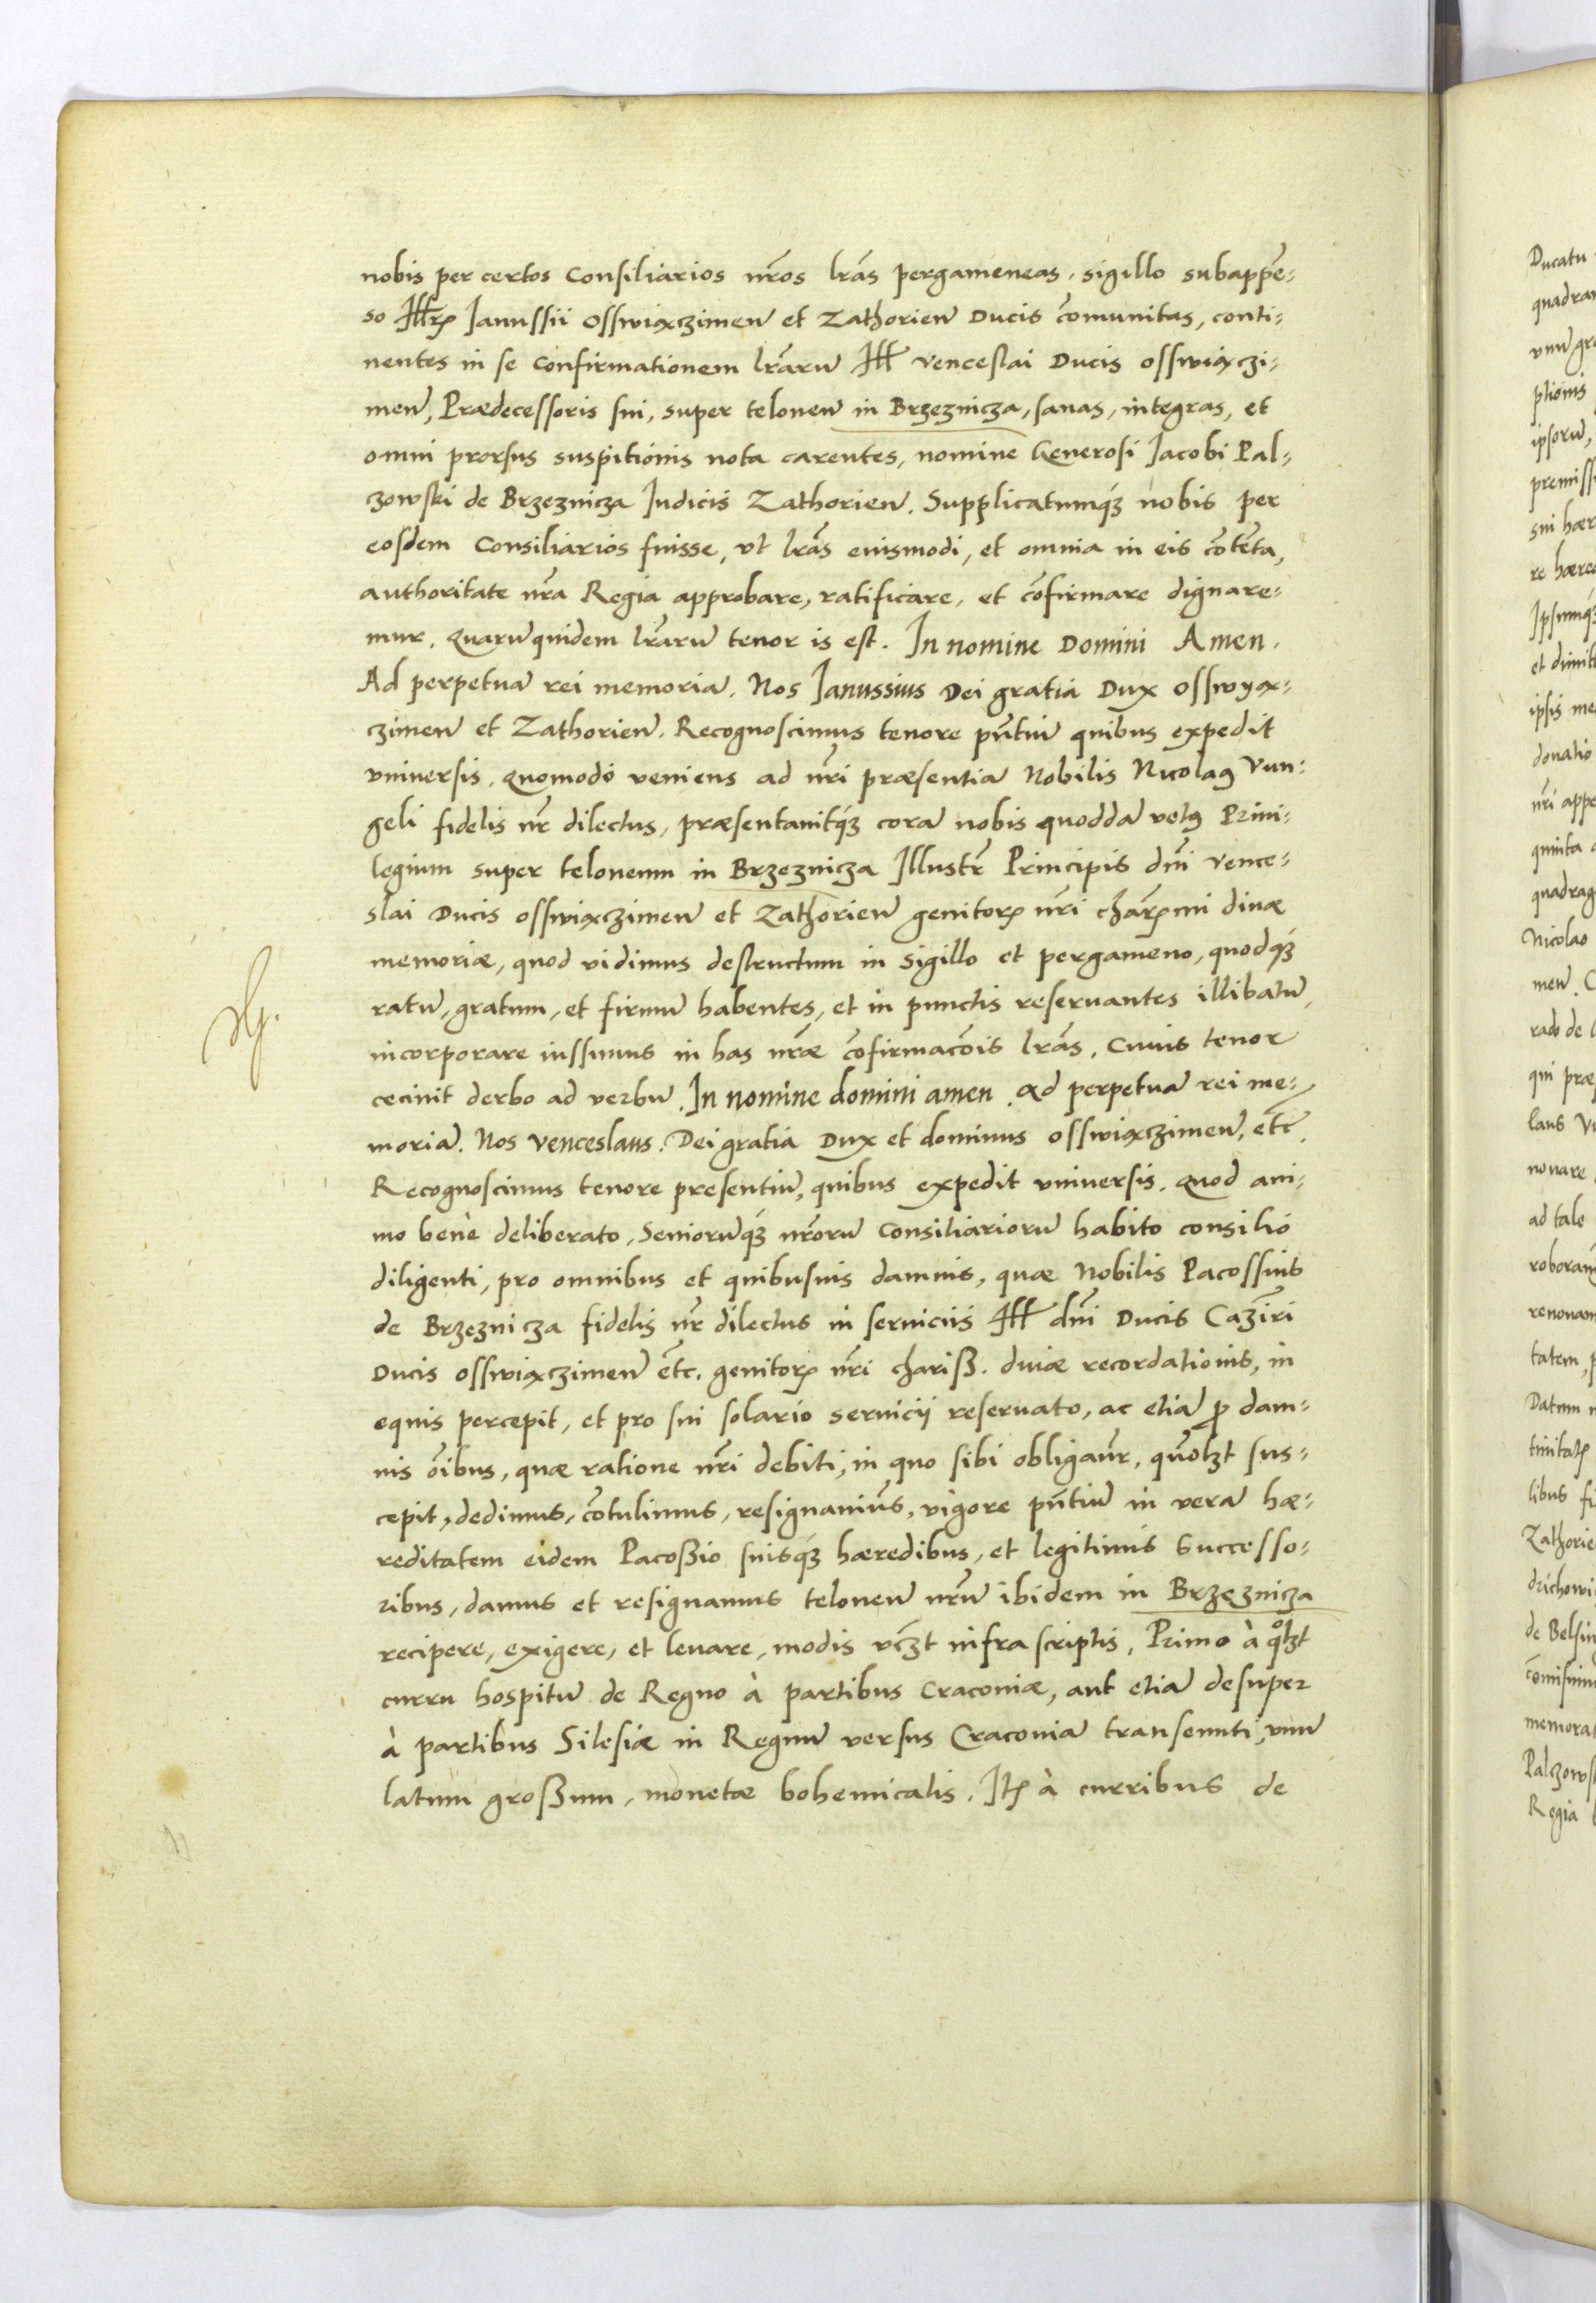 nobis per certos Consiliarios nr̃os lrãs pergameneas, sigillo subappẽ-
so Illr̃ Ianussii Osswiaxczimeñ et Zathorieñ Ducis cõmunitas, conti-
nentes in se confirmationem lrãrũ Ill Venceslai Ducis osswiaxczi-
meñ, Prædecessoris sui, super teloneũ in Brzeznicza, sanas, integras, et
omni prorsus suspitionis nota carentes, nomine Generosi Iacobi Pal-
czowski de Brzeznicza Iudicis Zathorieñ. Supplicatumqꝫ nobis per
eosdem Consiliarios fuisse, vt lrãs euismodi, et omnia in eis cõtẽta,
authoritate nr̃a Regia approbare, ratificare, et cõfirmare dignare-
mur. Quarũ quidem lrãrũ tenor is est. In nomine Domini Amen.
Ad perpetuã rei memoriã. Nos Ianussius Dei gratia Dux Osswyax-
czimeñ et Zathorieñ. Recognoscimus tenore pñtiũ quibus expedit
vniversis. Quomodo veniens ad nr̃i præsentiã Nobilis Nicolaꝰ Vun-
geli fidelis nr̃ dilectus, præsentauitqꝫ corã nobis quoddã vetꝰ Priui-
legium super teloneum in Brzeznicza Illustr̃ Principis dñi Vence-
slai Ducis osswiaxczimeñ et Zathorieñ genitorꝭ nr̃i chãrꝭmi diuæ
memoriæ, quod vidimus destructum in sigillo et pergameno, quodqꝫ
ratũ, gratum, et firmũ habentes, et in punctis reseruantes illibatũ,
incorporare iussimus in has nr̃æ cõfirmacõis lrãs. Cuius tenor
cecinit derbo ad verbũ. In nomine domini amen. Ad perpetuã rei me-
moriã. Nos Venceslaus. Dei gratia Dux et dominus osswiaxczimeñ, etc̃.
Recognoscimus tenore presentiũ, quibus expedit vniversis. Quod ani-
mo benè deliberato, Seniorũqꝫ nr̃orũ Consiliariorũ habito consilio
diligenti, pro omnibus et quibusuis damnis, quæ Nobilis Pacossius
de Brzeznicza fidelis nr̃ dilectus in seruiciis Ill dñi Ducis Cazĩri
Ducis osswiaxczimeñ etc̃. genitorꝭ nr̃i chariß. diuæ recordationis, in
equis percepit, et pro sui solario seruicij reseruato, ac etiã ꝓ dam-
nis õibus, quæ ratione nr̃i debiti, in quo sibi obligaũr, quõlꝫt sus-
cepit, dedimus, cõtulimus, resignauiũs, vigore pñtiũ in verã hæ-
reditatem eidem Pacoßio suisqꝫ hæredibus, et legitimis Successo-
ribus, damus et resignamus teloneũ nr̃ũ ibidem in Brzeznicza
recipere, exigere, et leuare, modis vcꝫt infra scriptis. Primo à qͦlꝫt
curru hospitũ de Regno à partibus Craconiæ, aut etiã desuper
à partibus Silesiæ in Regnũ versus Craconiã transeunti, vnũ
latum großum, monetæ bohemicalis. Itꝭ à curribus de
Ducatu
quadra
vnũ gr
ptionis
ipsorũ,
premiss
sui hær
re hære
Ipsumqꝫ
et dimit
ipsis me
donatio
nr̃i appe
quinta
quadrag
Nicolao
meñ. C
rado de
qui præ
laus V
nouare
ad tale
roborãn
renouam
tatem, p
Datum
tinitatꝭ
libus fi
Zathorie
drichowi
de Belsin
cõmisimu
memorat
Palczows
Regia